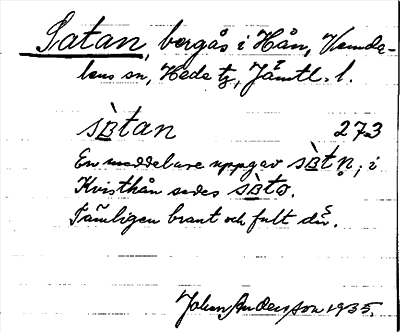 Satan, bergås i Hån, Vemda-
lens sn, Hede tg, Jämtl. l.
sὰtan 273
En meddelare uppgav sὰtn̥; i
Kvisthån sades sὰto.
Tämligen brant och fult där.
Johan Andersson 1935.